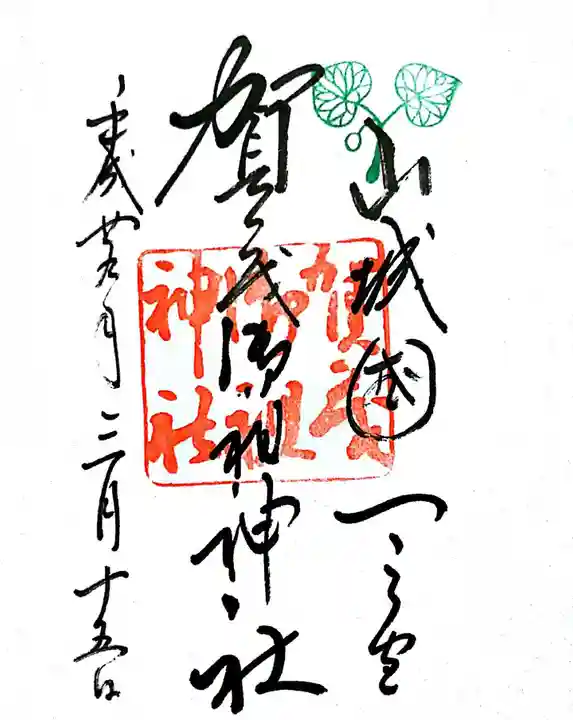 山城國一之宮
賀茂御祖神社
平成廿九年三月十五日
賀茂
御祖
神社